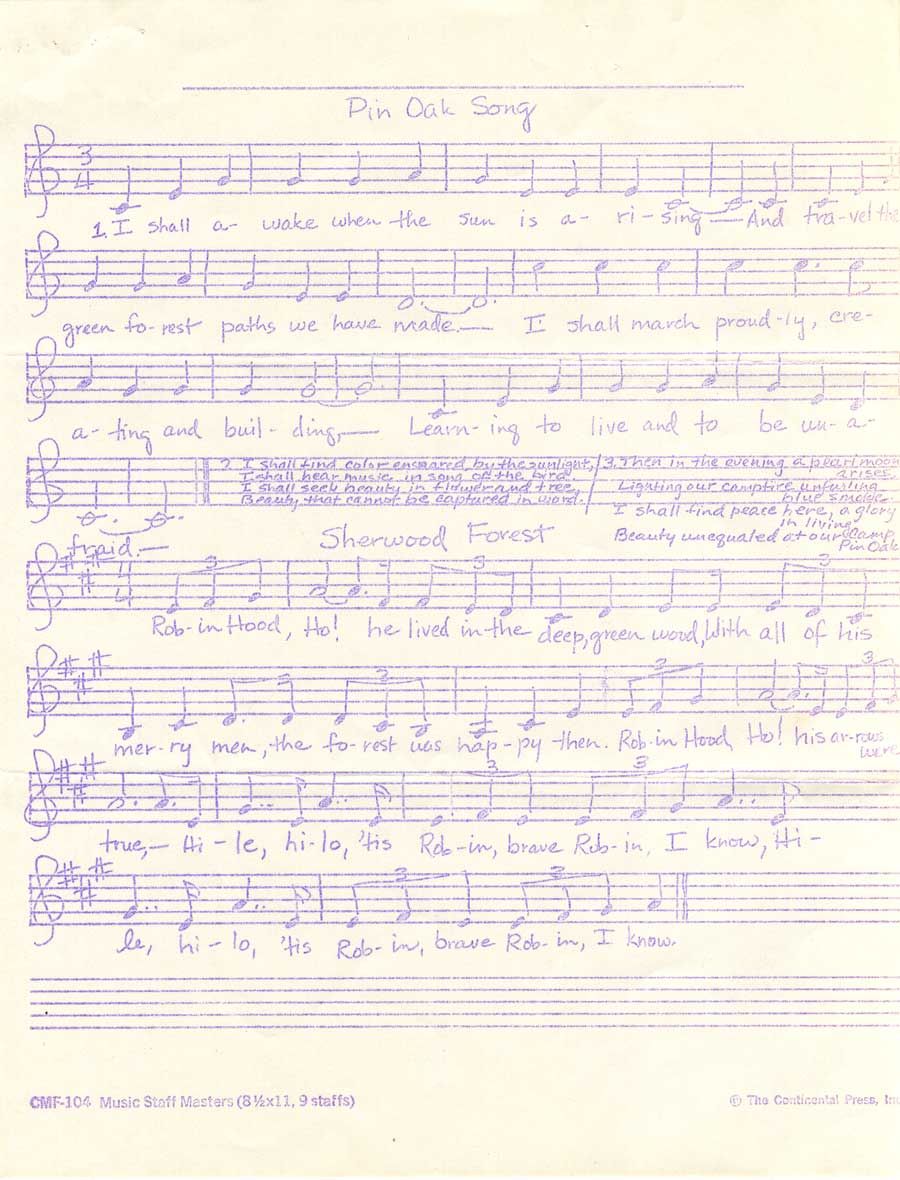 Pin Oak Song
3
4
1. I shall a- wake when the sun is a- ri- sing — And tra-vel the
green fo-rest paths we have made. — I shall march proud-ly, cre-
a- ting and buil- ding, — Learn- ing to live and to be un-a-
fraid. —
2. I shall find color ensnared by the sunlight,
I shall hear music in song of the bird.
I shall seek beauty in flower and tree,
Beauty that cannot be captured in word.
3. Then in the evening a pearl moon
arises
Lighting our campfire unfurling
blue smoke
I shall find peace here, a glory
in living
Beauty unequaled at our Camp
Pin Oak
Sherwood Forest
4
4
3
3
3
Rob-in Hood, Ho! he lived in the deep, green wood, With all of his
3
3
3
3
mer-ry men, the fo-rest was hap-py then. Rob-in Hood, Ho! his ar-rows
were
3
3
true, — Hi-le, hi-lo, 'tis Rob-in, brave Rob-in, I know, Hi-
3
3
le, hi-lo, 'tis Rob-in, brave Rob-in, I know.
CMF-104 Music Staff Masters (8½x11, 9 staffs)
© The Continental Press, Inc